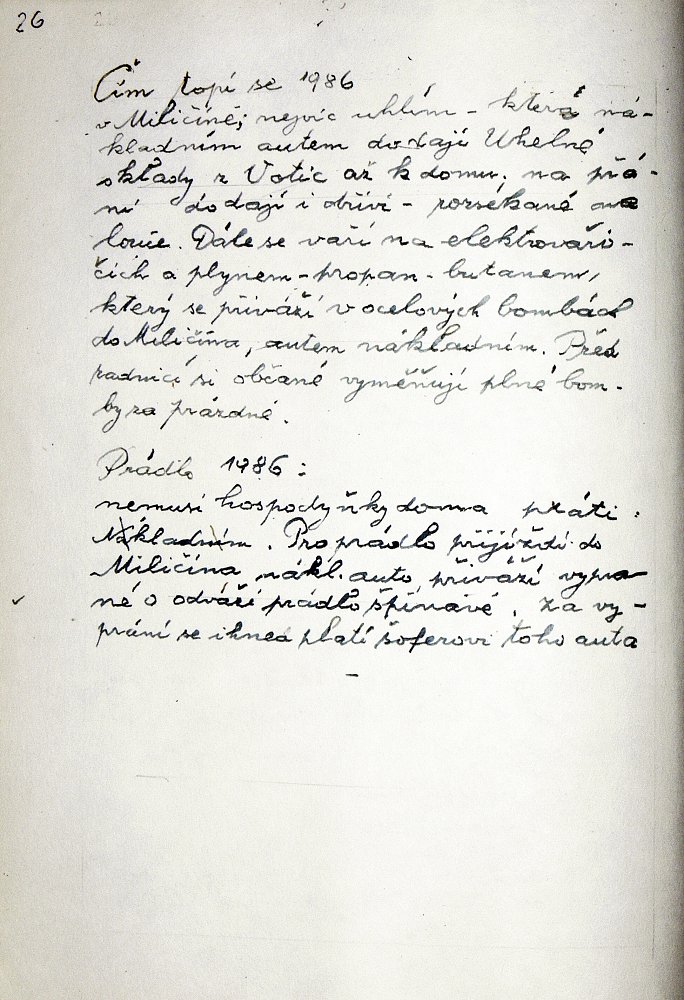 26
Čím topí se 1986
v Miličíně; nejvíc uhlím - která ná-
kladním autem dodají Uhelné
sklady z Votic až k domu, na přá-
ní dodají i dříví - rozsekané na
louče. Dále se vaří na elektrovaři-
čích a plynem - propan - butanem,
který se přiváží v ocelových bombách
do Miličína, autem nákladním. Před
radnicí si občané vyměňují plné bom-
by za prázdné.
Prádlo 1986:
nemusí hospodyňky doma práti.
Nákladním. Pro prádlo přijíždí do
Miličína nákl. auto, přiváží vypra-
né o odváží prádlo špinavé. Za vy-
prání se ihned platí šoferovi toho auta